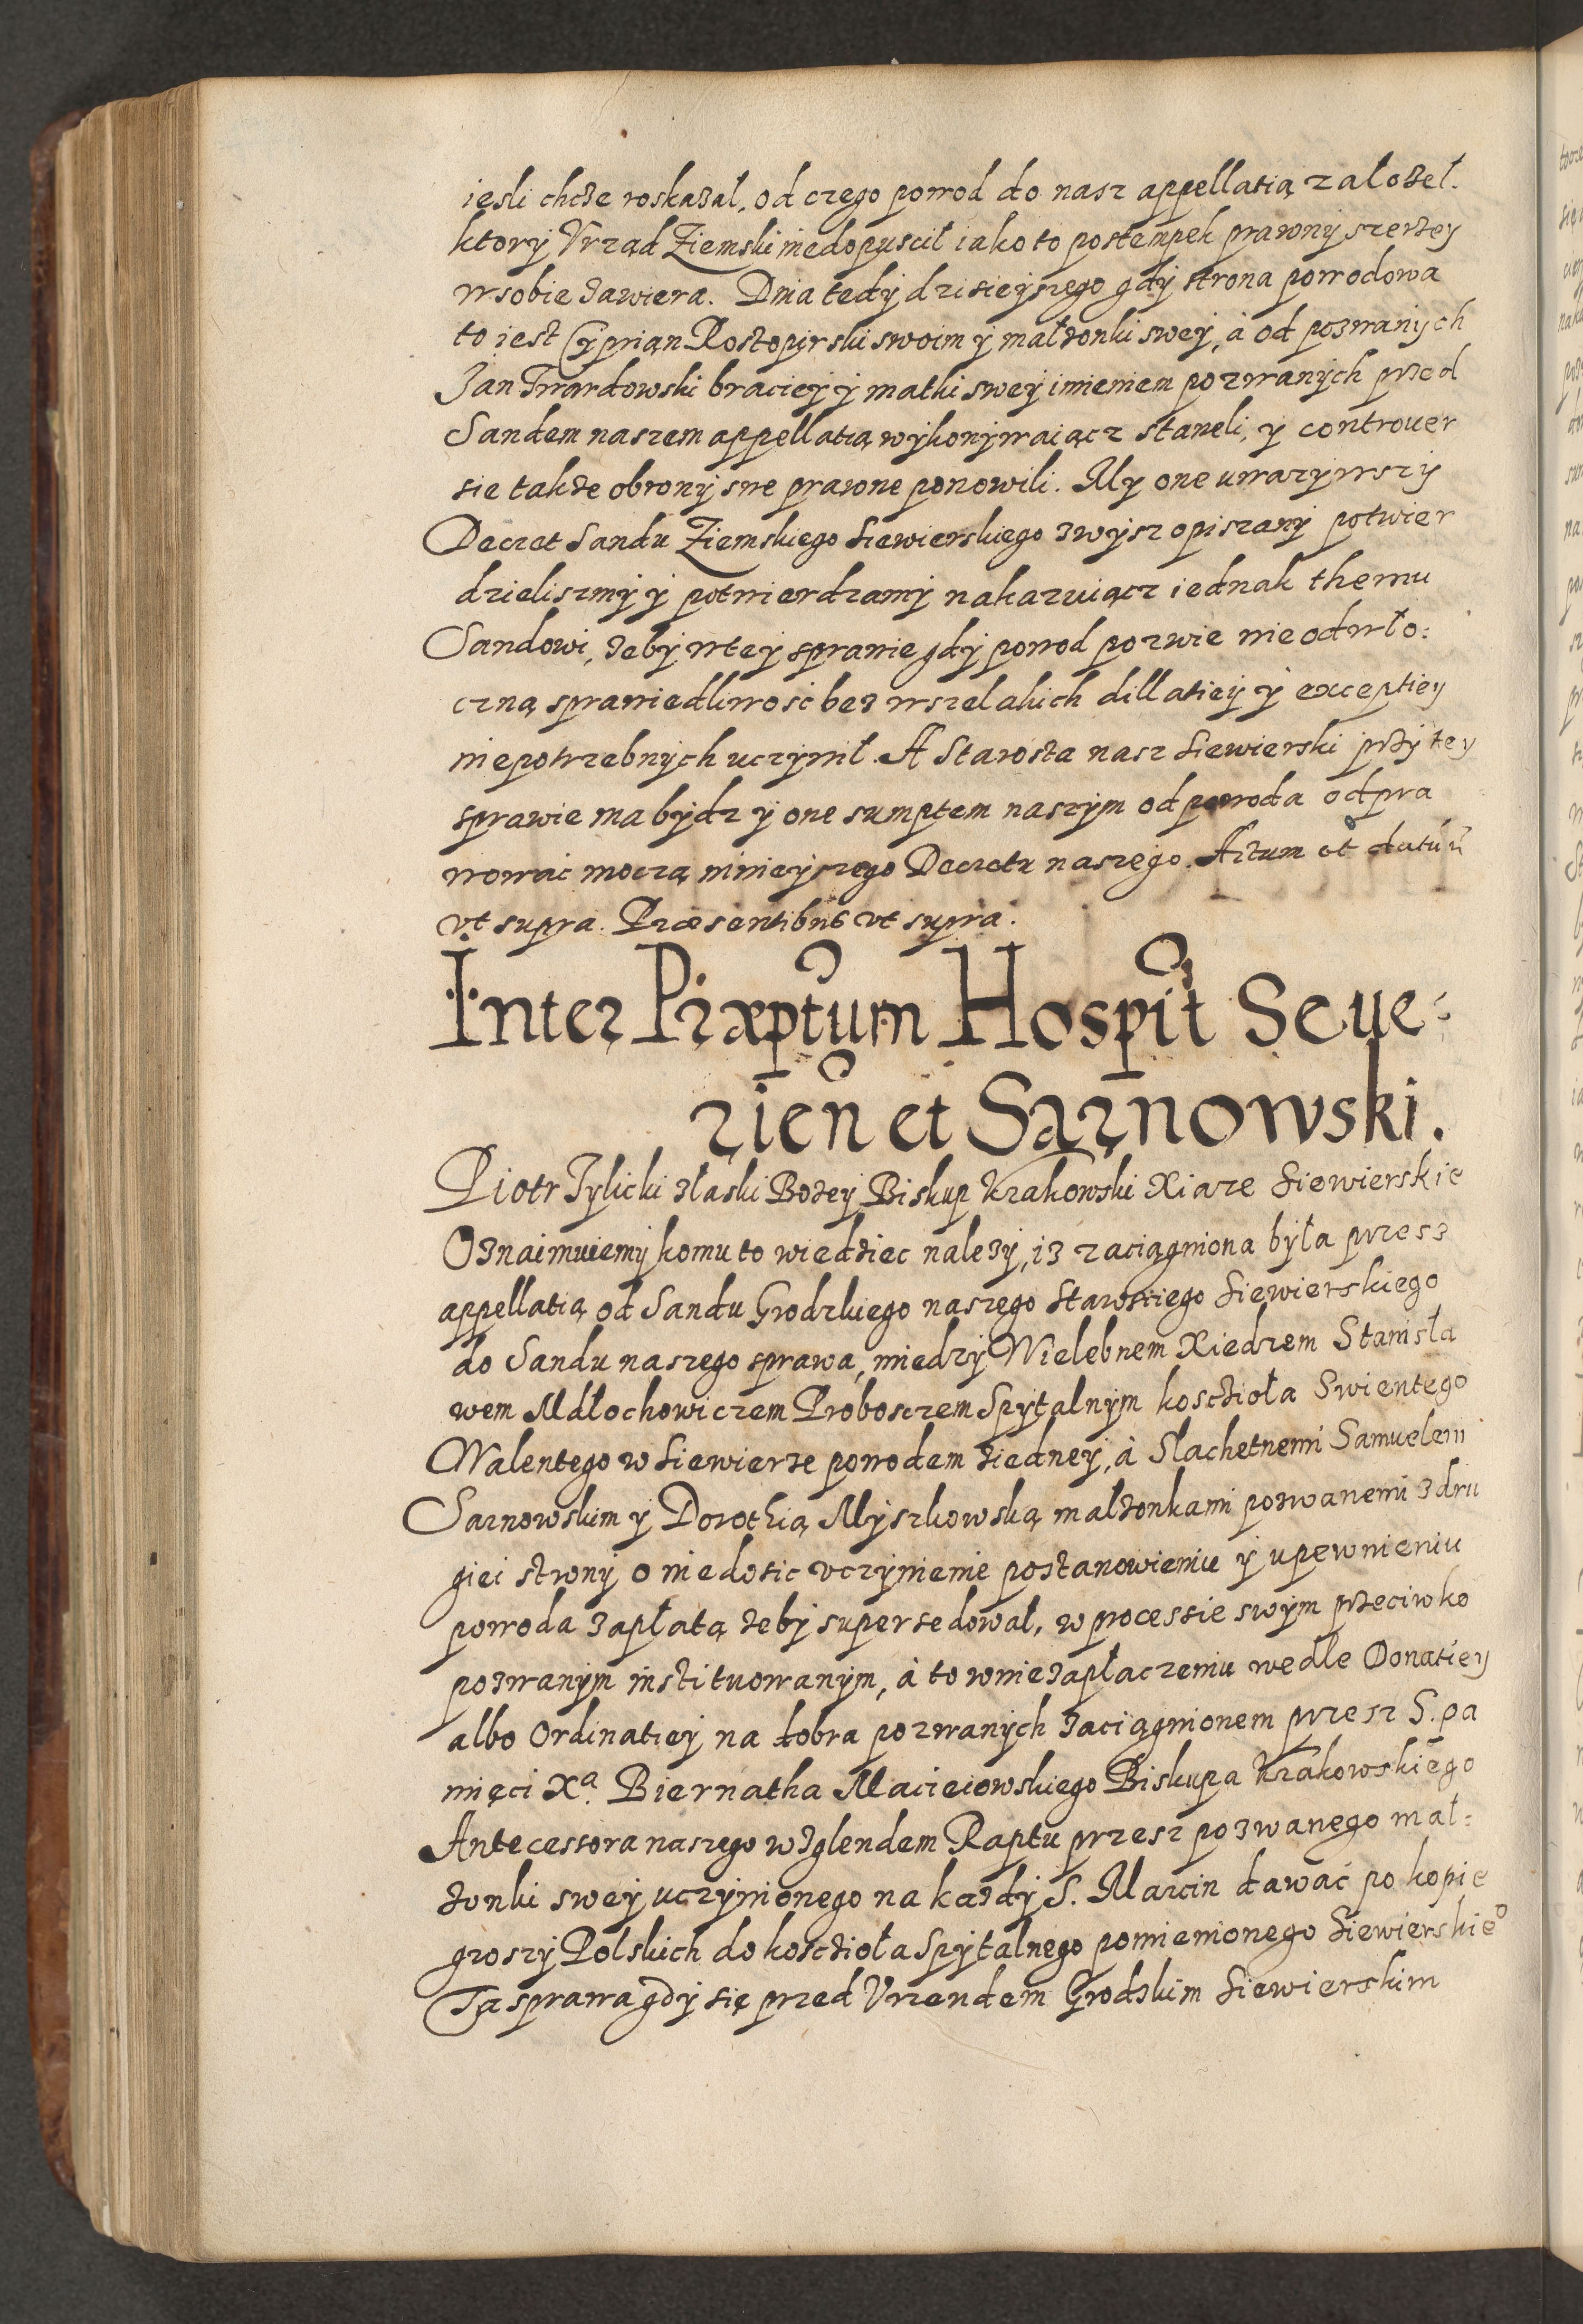 iesli chcże roskazał, od czego powod do nasz appellatią założeł.
ktorÿ Vrząd Ziemski niedopuscił iako to postempek prawnÿ szerzeÿ
w sobie zawiera. Dnia tedÿ dzisieÿszego gdÿ strona powodowa
to iest Cÿprian Rostopirski swoim ÿ małżonki sweÿ, à od pozwanÿch
Jan Twardowski bracieÿ ÿ matki sweÿ imieniem pozwanÿch przed
Sandem naszem appellatią wÿkonÿwaiącz staneli, ÿ controuer
sie także obronÿ swe prawne ponowili. Mÿ one uważÿwszÿ
Decret Sandu Ziemskiego Siewierskiego zwÿsz opiszanÿ potwier
dzieliszmÿ ÿ potwierdzamÿ nakazuiącz iednak themu
Sandowi, żebÿ w teÿ sprawie gdÿ powod pozwie nieodwło:
czną sprawiedliwość bez wszelakich dillatieÿ ÿ exceptieÿ
niepotrzebnÿch uczÿnił. A Starosta nasz Siewierski przÿ teÿ
sprawie ma bÿdz ÿ one sumptem naszÿm od powoda odpra
wować moczą ninieÿszego Decretu naszego. Actum et datũ
vt supra. Præsentibus vt supra.
Inter Præptum Hospit Seue:
rien et Sarnowski.
Piotr Tÿlicki złaski Bożeÿ Biskup Krakowski Xiąże Siewierskie
Oznaimuiemÿ komu to wiedziec należÿ, iż zaciągniona bÿła przesz
appellatią od Sandu Grodzkiego naszego Starosciego Siewierskiego
do Sandu naszego sprawa, miedzÿ Wielebnem Xiedzem Stanisła
wem Mdłochowiczem Proboszczem Spÿtalnÿm koscżioła Swientego
Walentego w Siewierze powodem ziedneÿ, à Slachetnemi Samuelem
Sarnowskim ÿ Dorothią Mÿszkowską małżonkami pozwanemi z dru
giei stronÿ o niedosic vczÿnienie postanowieniu ÿ upewnieniu
powoda zapłatą żebÿ supersedował, w processie swÿm przeciwko
pozwanÿm instituowanÿm, à to w niezapłaczeniu wedle Donatieÿ
albo Ordinatieÿ na dobra pozwanÿch zaciągnionem przesz S. pa
mięci Xª. Biernatha Macieiowskiego Biskupa Krakowskiego
Antecessora naszego wzglendem Raptu przesz pozwanego mał:
żonki sweÿ uczÿnionego na każdÿ S. Marcin dawać po kopie
groszÿ Polskich do koscżioła Spÿtalnego pomienionego Siewierskie°
Ta sprawa gdÿ się przed Vrzendem Grodzkim Siewierskim